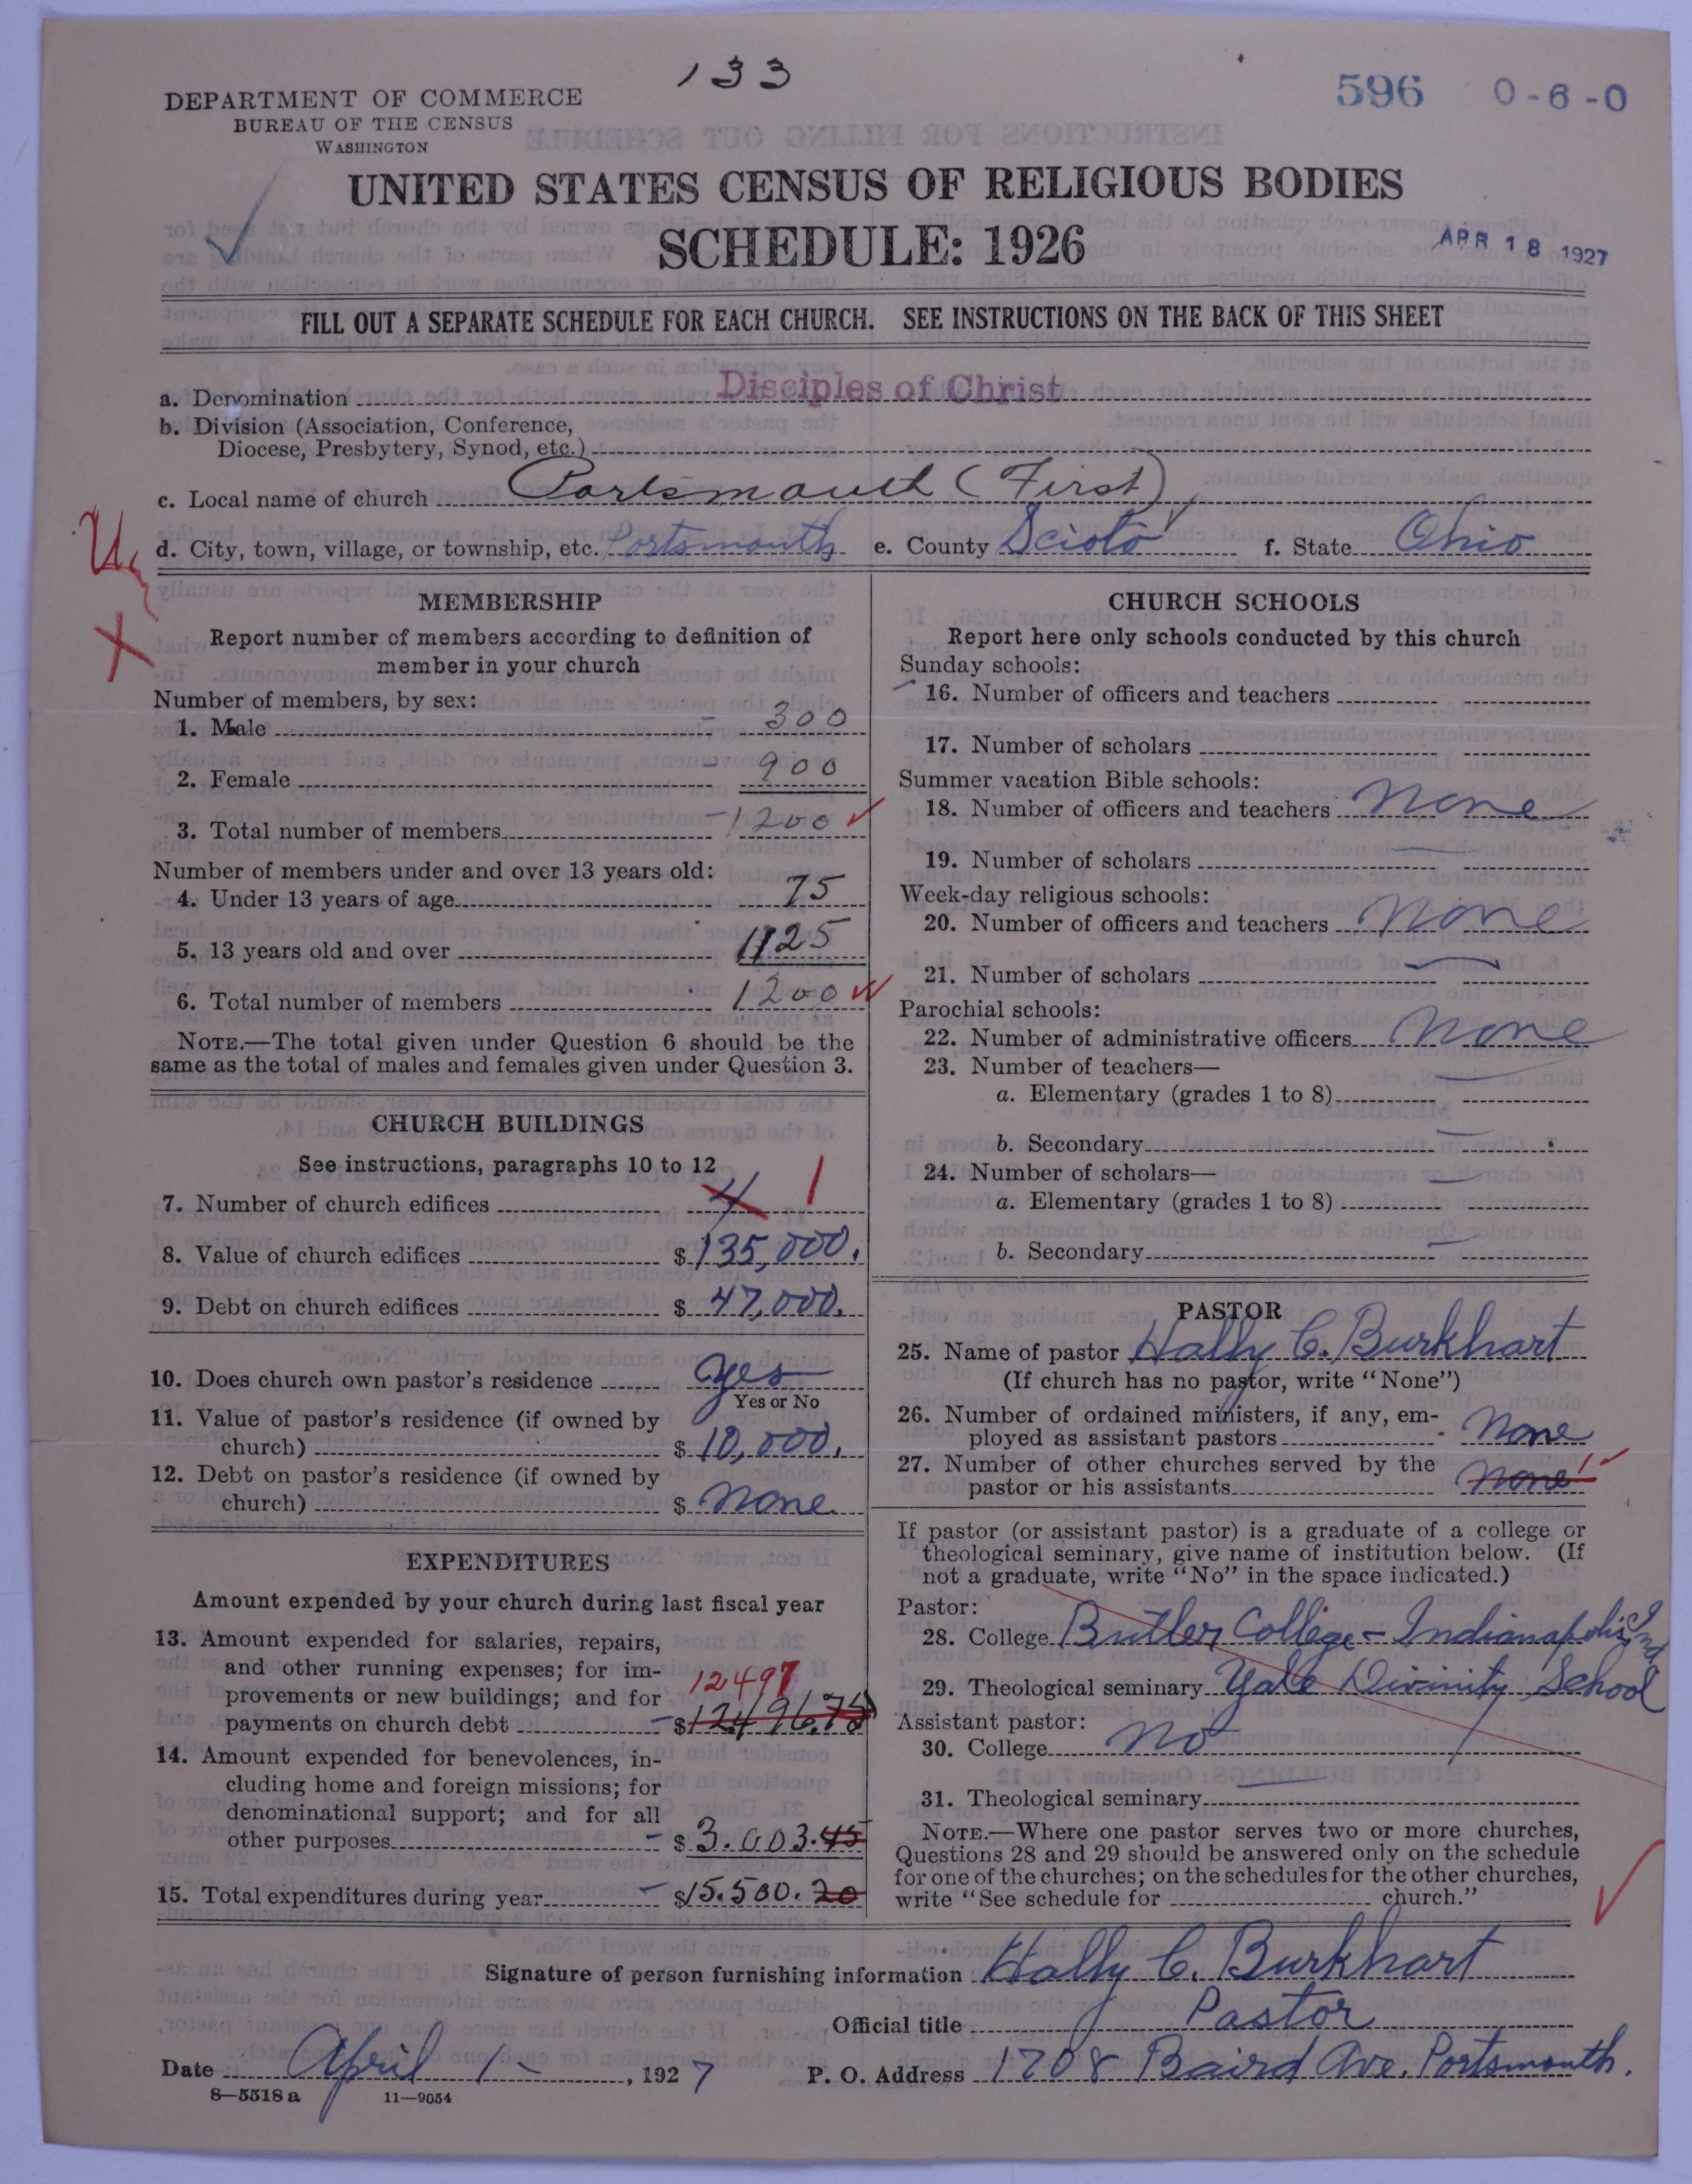 133
596 0-6-0
DEPARTMENT OF COMMERCE
BUREAU OF THE CENSUS
WASHINGTON
UNITED STATES CENSUS OF RELIGIOUS BODIES
SCHEDULE: 1926
APR 18 1927
FILL OUT A SEPARATE SCHEDULE FOR EACH CHURCH. SEE INSTRUCTIONS ON THE BACK OF THIS SHEET
a. Denomination Disciples of Christ
b. Division (Association, Conference,
Diocese, Presbytery, Synod, etc.)
c. Local name of church Portsmouth (First)
d. City, town, village, or township, etc. Portsmouth e. County Scioto f. State Ohio
MEMBERSHIP
Report number of members according to definition of
member in your church
Number of members, by sex:
1. Male 300
2. Female 900
3. Total number of members 1200
Number of members under and over 13 years old:
4. Under 13 years of age 75
5. 13 years old and over 1125
6. Total number of members 1200
NOTE.—The total given under Question 6 should be the
same as the total of males and females given under Question 3.
CHURCH BUILDINGS
See instructions, paragraphs 10 to 12
7. Number of church edifices 1
8. Value of church edifices $ 135,000.
9. Debt on church edifices $ 47,000.
10. Does church own pastor's residence yes
Yes or No
11. Value of pastor's residence (if owned by
church) $ 10,000.
12. Debt on pastor's residence (if owned by
church) $ None
EXPENDITURES
Amount expended by your church during last fiscal year
13. Amount expended for salaries, repairs,
and other running expenses; for im-
provements or new buildings; and for 12497
payments on church debt $ 12496.75
14. Amount expended for benevolences, in-
cluding home and foreign missions; for
denominational support; and for all
other purposes $ 3.003.45
15. Total expenditures during year $15.500.20
CHURCH SCHOOLS
Report here only schools conducted by this church
Sunday schools:
16. Number of officers and teachers
17. Number of scholars
Summer vacation Bible schools:
18. Number of officers and teachers None
19. Number of scholars
Week-day religious schools:
20. Number of officers and teachers None
21. Number of scholars
Parochial schools:
22. Number of administrative officers None
23. Number of teachers—
a. Elementary (grades 1 to 8)
b. Secondary
24. Number of scholars—
a. Elementary (grades 1 to 8)
b. Secondary
PASTOR
25. Name of pastor Hally C. Burkhart
(If church has no pastor, write "None")
26. Number of ordained ministers, if any, em-
ployed as assistant pastors None
27. Number of other churches served by the
pastor or his assistants None 1
If pastor (or assistant pastor) is a graduate of a college or
theological seminary, give name of institution below. (If
not a graduate, write "No" in the space indicated.)
Pastor:
28. College Butler College - Indianapolis Ind
29. Theological seminary Yale Divinity School
Assistant pastor:
30. College No
31. Theological seminary
NOTE.—Where one pastor serves two or more churches,
Questions 28 and 29 should be answered only on the schedule
for one of the churches; on the schedules for the other churches,
write "See schedule for church."
Signature of person furnishing information Hally C. Burkhart
Official title Pastor
Date April 1-, 1927 P. O. Address 1708 Baird Ave. Portsmouth.
8—5518 a 11—9054